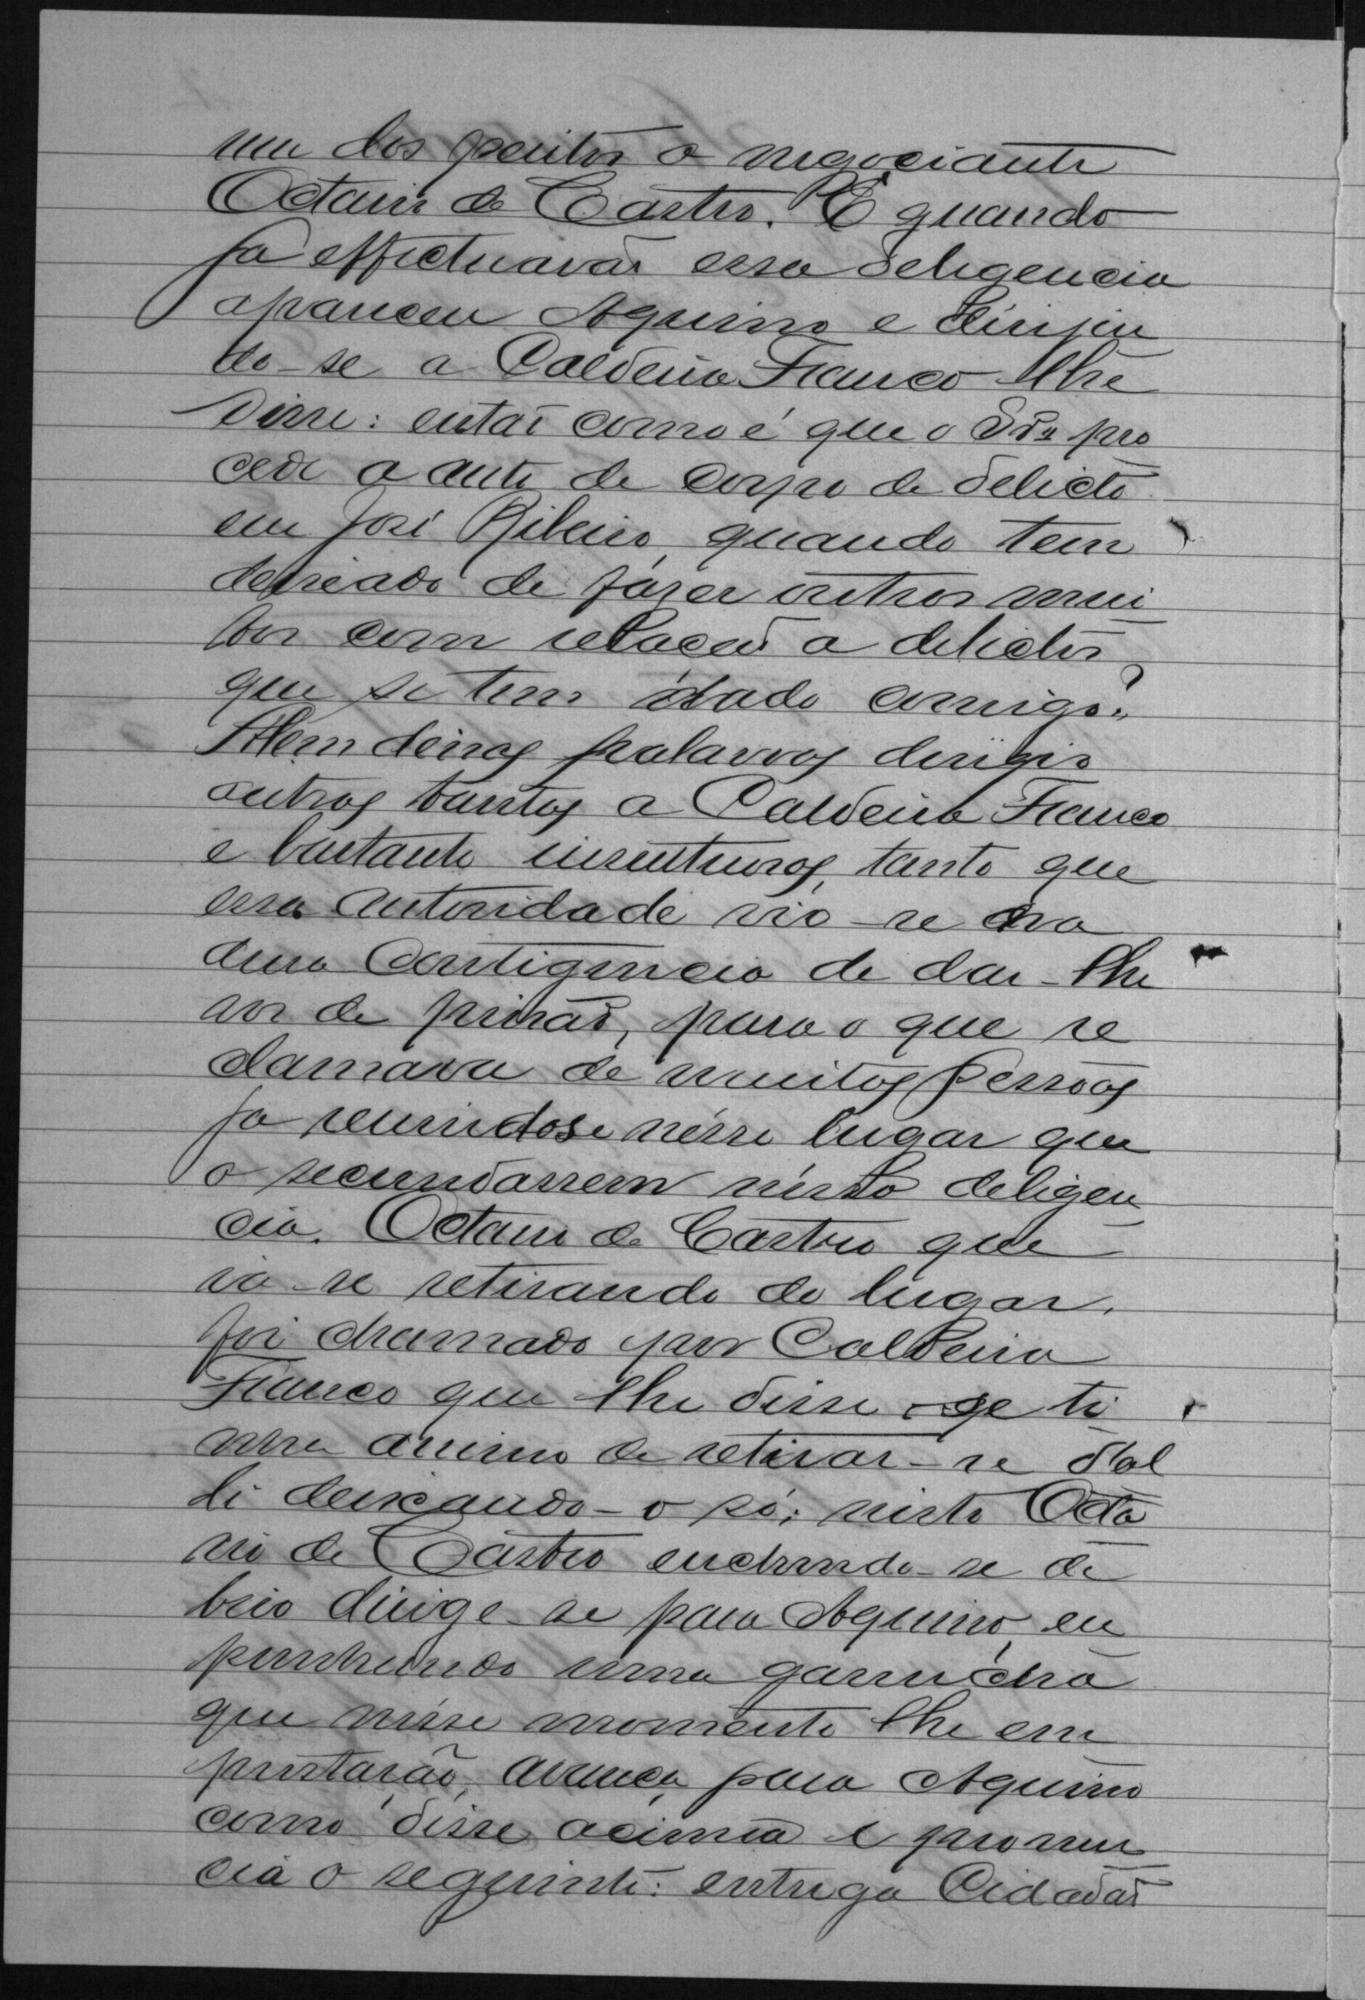 um dos peritos o negociante
Octavio de Castro. E quando
ja effectuavão essa deligencia
apareceu Aquino e dirijin
do-se a Caldeira Franco lhe
disse: então como é que o Snr pro
cede a auto de corpo de delicto
em José Ribeiro, quando tem
deixado de fazer outros mui
tos com relação a delictos
que se tem dado comigo?
Alem dessas palavras dirigio
outras tantas a Caldeira Franco
e bastante insultuosas, tanto que
essa autoridade vio-se na
dura contigencia de dar-lhe
voz de prisão, para o que re
clamava de muitas pessoas
ja reunidas nésse lugar que
o secundassem nésta deligen
cia. Octavio de Castro que
ia-se retirando do lugar,
foi chamado por Caldeira
Franco que lhe disse se ti
nha animo de retirar-se d'al
li deixando-o só; nisto Octa
vio de Castro enchendo-se de
brio dirige-se para Aquino, em
punhando uma garrucha
que nésse momento lhe em
prestarão, avança para Aquino
como disse acima e pronun
cia o seguinte: entrega Cidadão